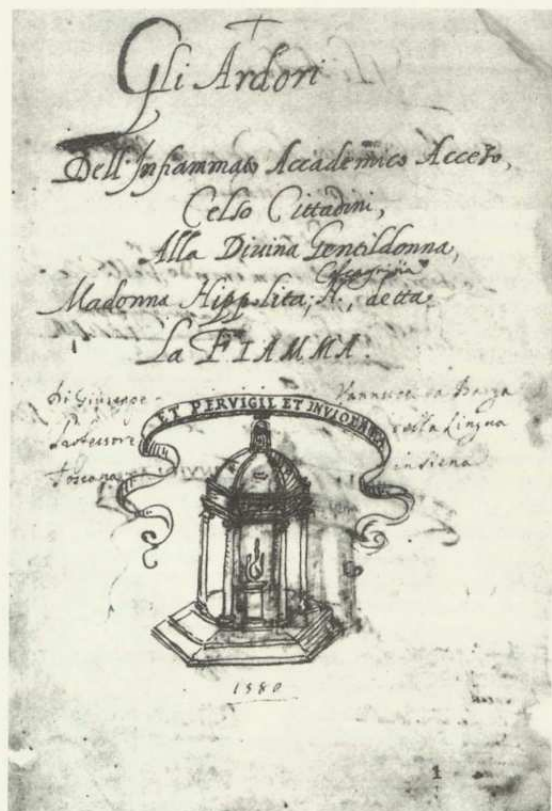 Gli Ardori
Dell'Infiammato Accademico Acceso,
Celso Cittadini,
Alla Divina Gentildonna,
Madonna Hippolita, N., detta
La FIAMMA.
di Giuseppe Vannucci da Barga
Professore della Lingua
Toscana in Siena
ET PERVIGIL ET INVIOLATA
1580
1